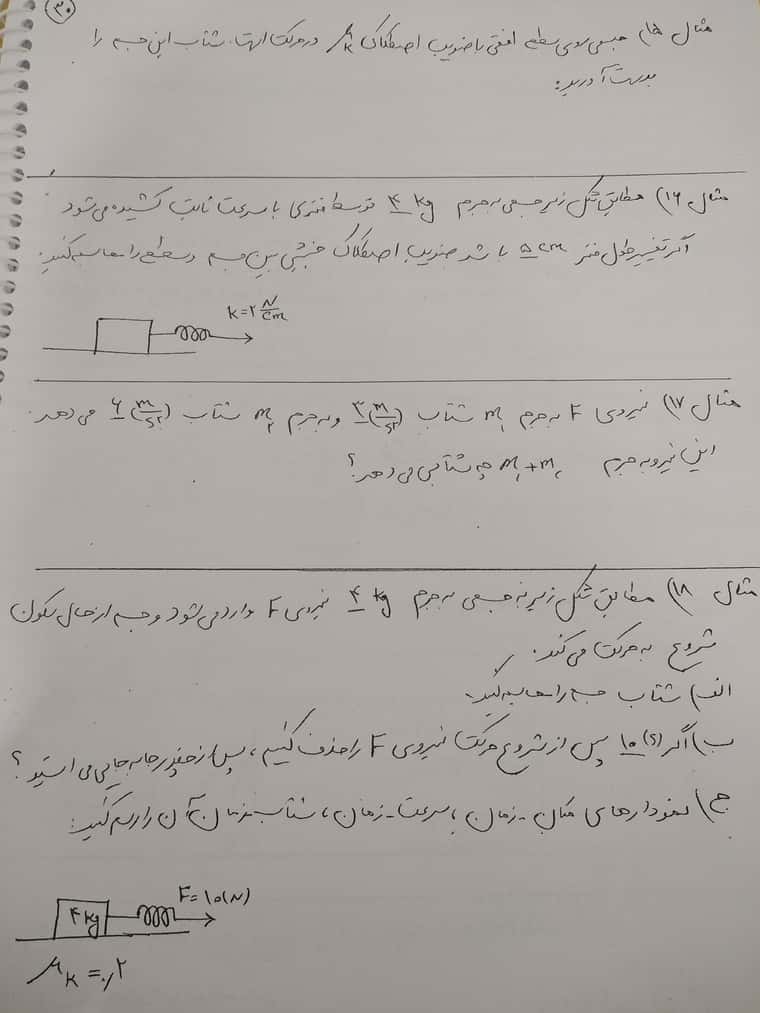 ۳۰
مثال ۱۵) جسمی روی سطح افقی با ضریب اصطکاک μk در حرکت است. شتاب این جسم را
بدست آورید:
مثال ۱۶) مطابق شکل زیر جسمی به جرم ۴ kg توسط فنری با سرعت ثابت کشیده می‌شود
اگر تغییر طول فنر ۵ cm باشد ضریب اصطکاک جنبشی بین جسم و سطح را محاسبه کنید:
k=۲ N/cm
مثال ۱۷) نیروی F به جرم m₁ شتاب ۳(m/s²) و به جرم m₂ شتاب ۶(m/s²) می دهد.
این نیرو به جرم m₁+m₂ چه شتابی می دهد؟
مثال ۱۸) مطابق شکل زیر به جسمی به جرم ۴ kg نیروی F وارد می شود و جسم از حال سکون
شروع به حرکت می کند.
الف) شتاب جسم را محاسبه کنید.
ب) اگر ۱۰(s) پس از شروع حرکت نیروی F را حذف کنیم، پس از چقدر جابه جایی می ایستد؟
ج) نمودارهای مکان - زمان، سرعت - زمان، شتاب - زمان آن را رسم کنید:
F=۱۰(N)
۴kg
μk=۰٫۲